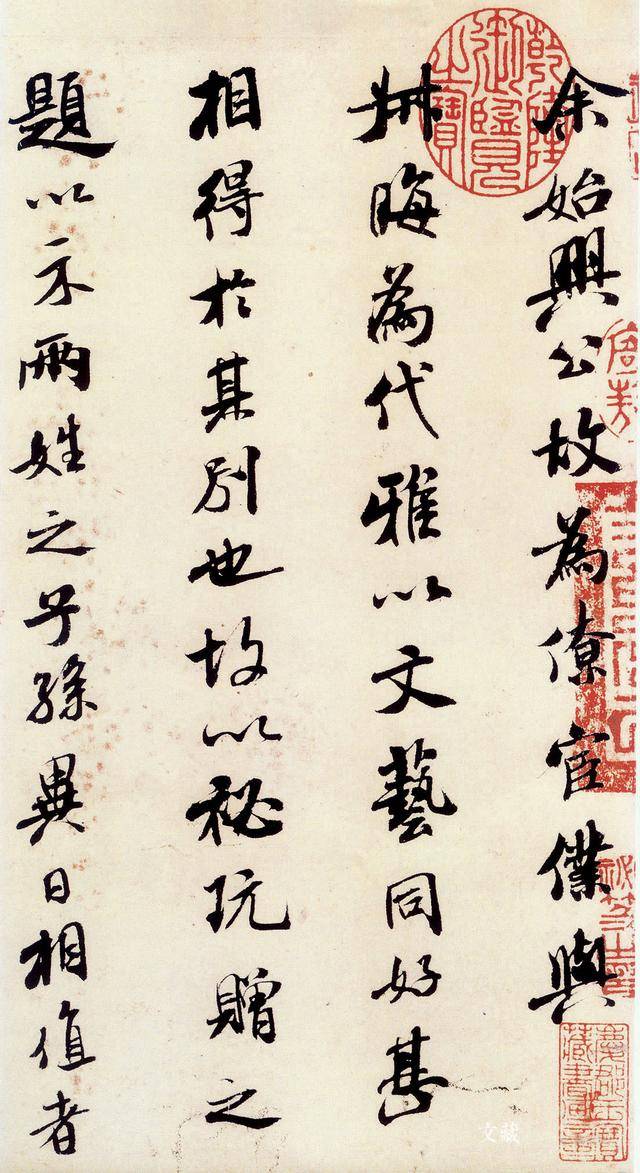 余始興公故為僚宦僕與
叔晦為代雅以文藝同好甚
相得於其別也故以秘玩贈之
題以示兩姓之子孫異日相值者
乾隆御覽之寶
文藏